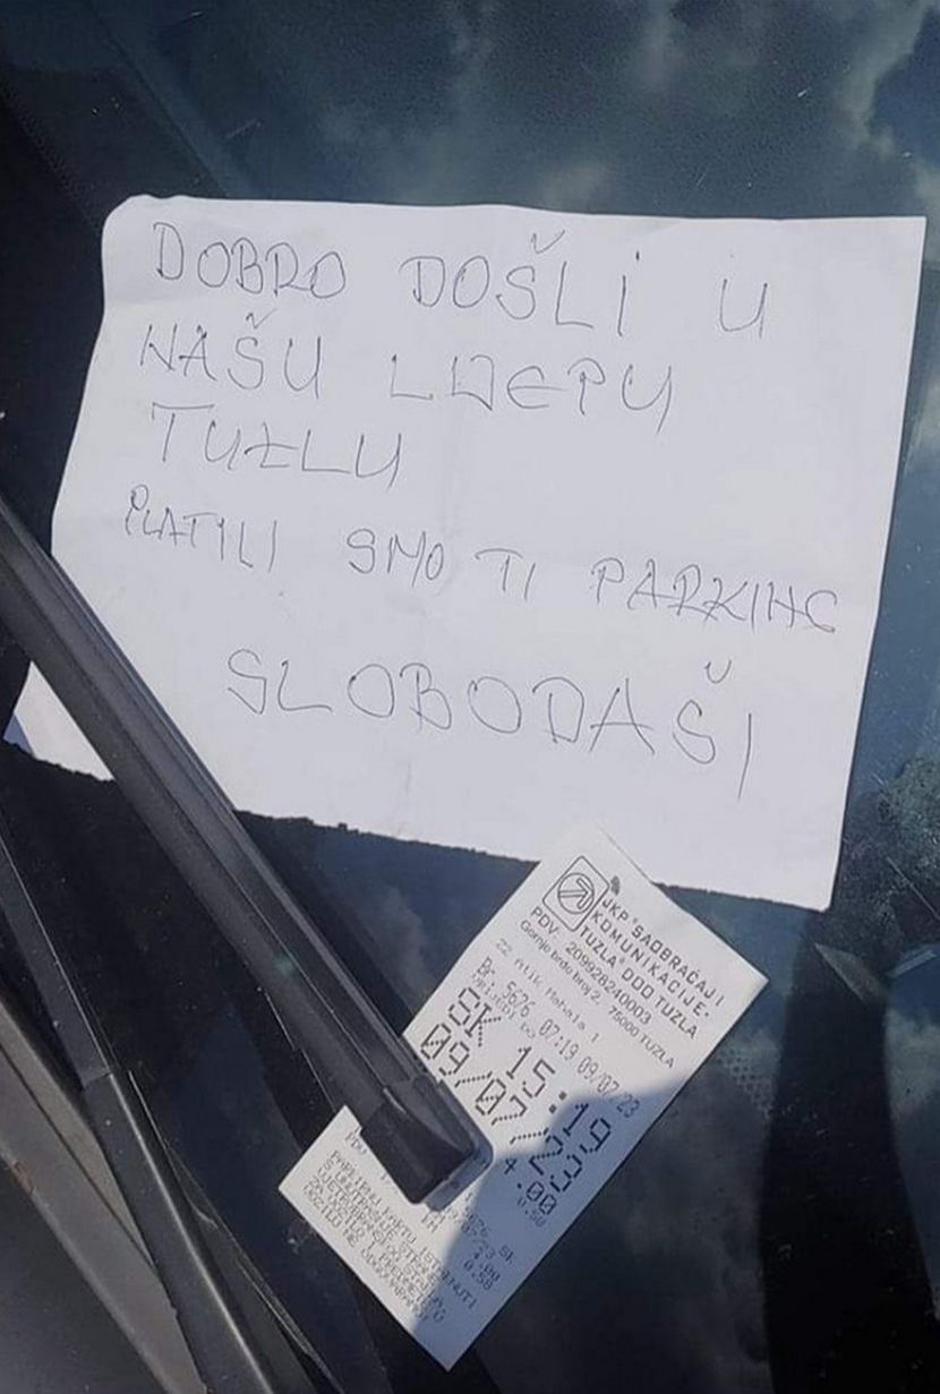 DOBRO DOŠLI U
NAŠU LIJEPU
TUZLU
PLATILI SMO TI PARKING
SLOBODAŠI
JKP "SAOBRAĆAJ I
KOMUNIKACIJE"
TUZLA" DOO TUZLA
PDV: 209928240003
Gornje brdo broj 2, 75000 TUZLA
Br. 5626 07:19 09/07/23
15:19
09/07/23
4.00
0.58